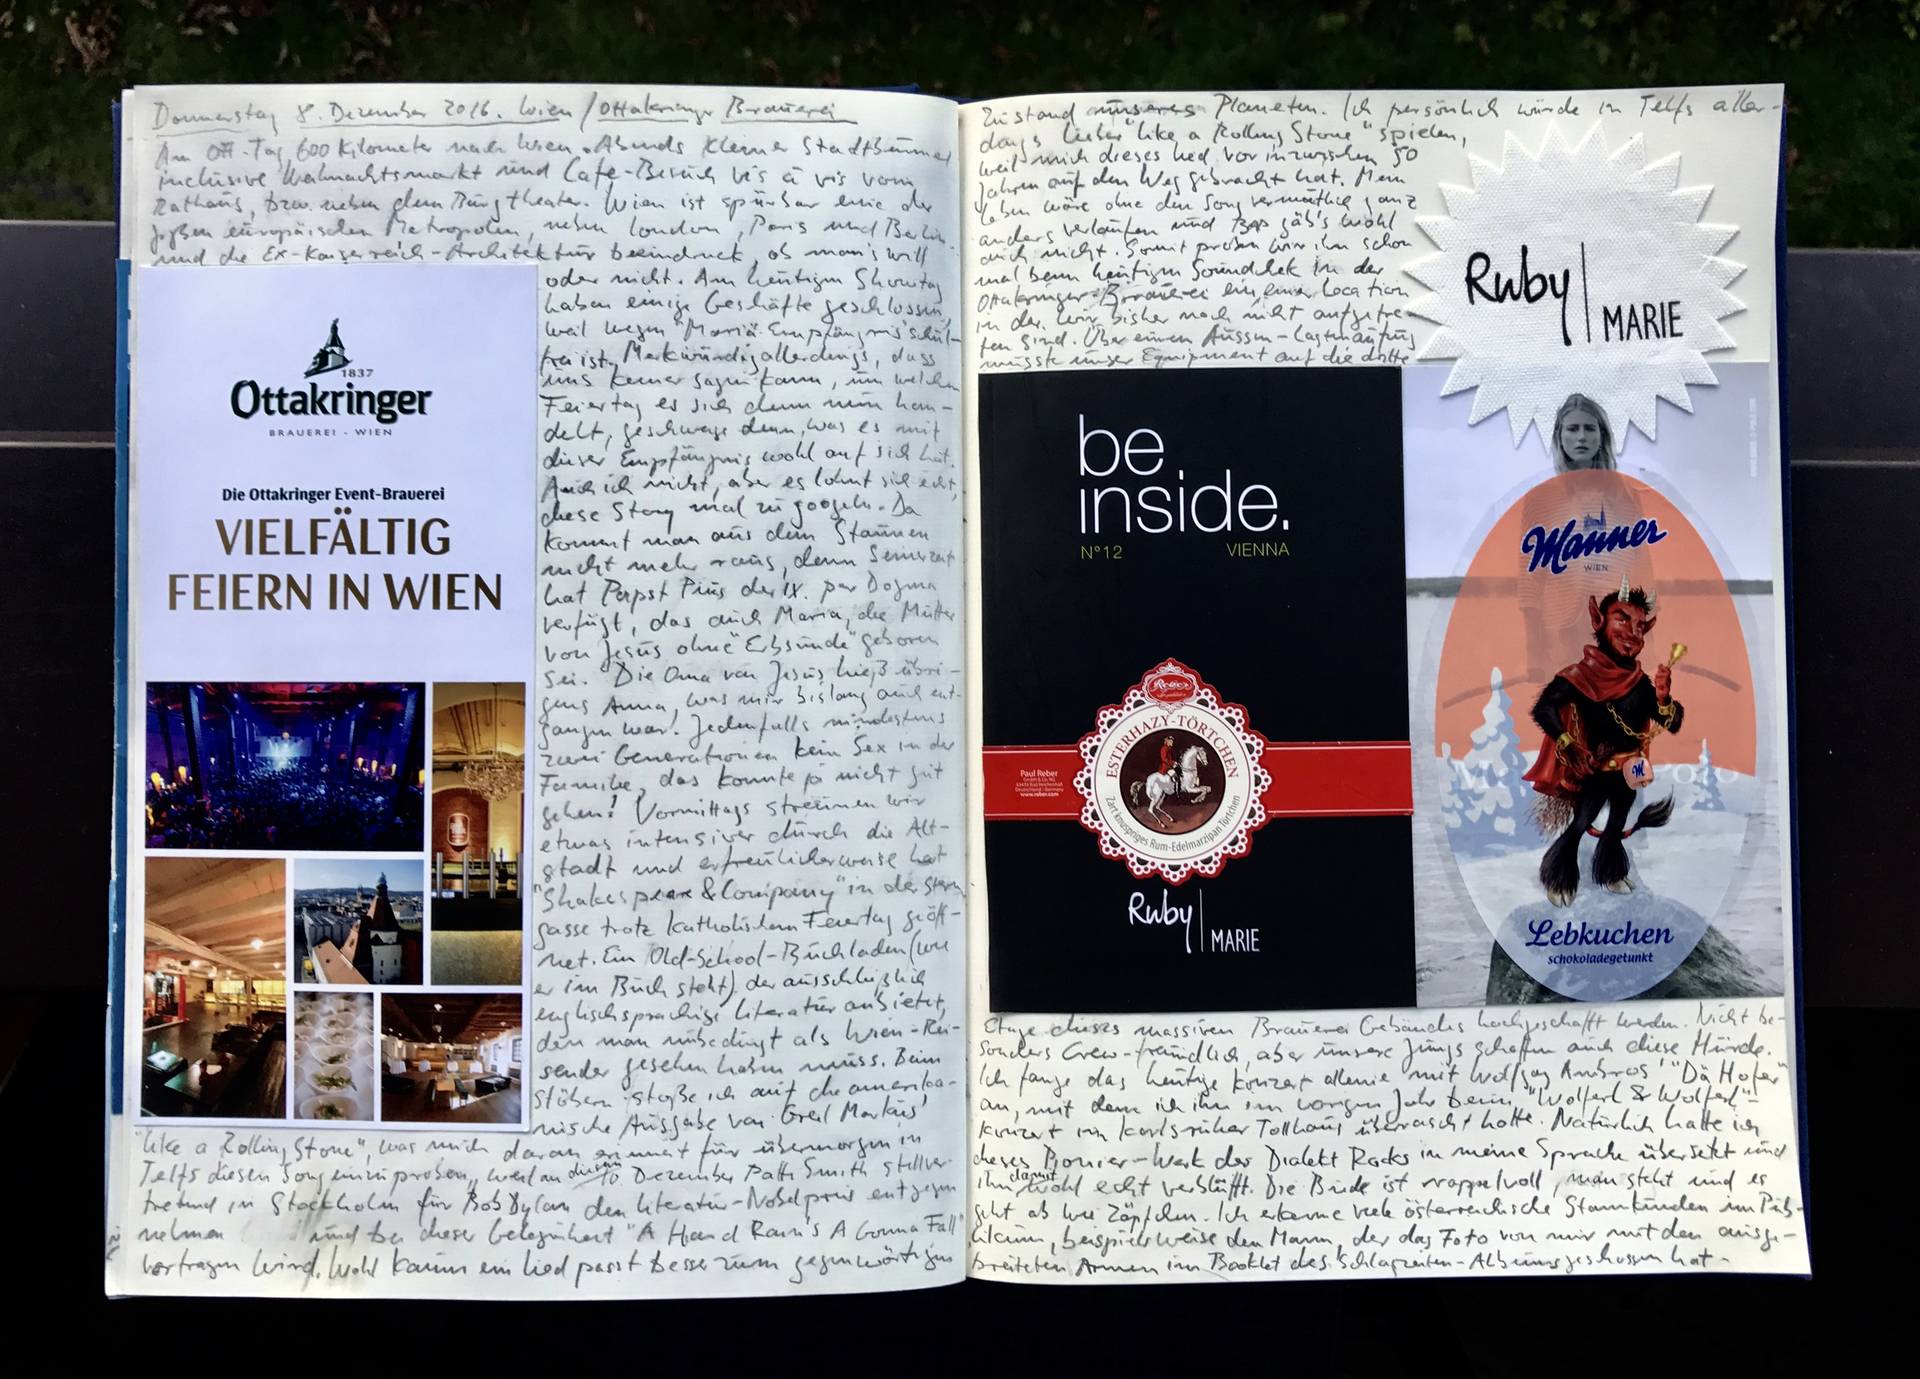 Donnerstag 8. Dezember 2016. Wien / Ottakringer Brauerei
Am Off-Tag, 600 Kilometer nach Wien. Abends kleiner Stadtbummel
inclusive Weihnachtsmarkt und Cafe-Besuch vis à vis vom
Rathaus, bzw. neben dem Burgtheater. Wien ist spürbar eine der
großen europäischen Metropolen, neben London, Paris und Berlin.
und die Ex-Kaiserreich-Architektur beeindruckt, ob man's will
oder nicht. Am heutigen Showtag
haben einige Geschäfte geschlossen,
weil wegen "Mariä Empfängnis" schul-
frei ist. Merkwürdig allerdings, dass
uns keiner sagen kann, um welchen
Feiertag es sich denn nun han-
delt, geschweige denn, was es mit
dieser Empfängnis wohl auf sich hat.
Auch ich nicht, aber es lohnt sich echt,
diese Story mal zu googeln. Da
kommt man aus dem Staunen
nicht mehr raus, denn seinerzeit
hat Papst Pius der IX. per Dogma
verfügt, das auch Maria, die Mutter
von Jesus ohne "Erbsünde" geboren
sei. Die Oma von Jesus hieß übri-
gens Anna, was mir bislang auch ent-
gangen war! Jedenfalls mindestens
zwei Generationen kein Sex in der
Familie, das konnte ja nicht gut
gehen! Vormittags streunen wir
etwas intensiver durch die Alt-
stadt und erfreulicherweise hat
"Shakespeare & Company" in der Stern-
gasse trotz katholischem Feiertag geöff-
net. Ein Old-School-Buchladen (wie
er im Buch steht), der ausschließlich
englischsprachige Literatur anbietet,
den man unbedingt als Wien-Rei-
sender gesehen haben muss. Beim
Stöbern stoße ich auf die amerika-
nische Ausgabe von Greil Marcus'
"Like a Rolling Stone", was mich daran erinnert für übermorgen in
Telfs diesen Song einzuproben, weil an diesem 10. Dezember Patti Smith stellver-
tretend in Stockholm für Bob Dylan den Literatur-Nobelpreis entgegen
nehmen und bei dieser Gelegenheit "A Hard Rain's A Gonna Fall"
vortragen wird. Wohl kaum ein Lied passt besser zum gegenwärtigen
1837
Ottakringer
BRAUEREI - WIEN
Die Ottakringer Event-Brauerei
VIELFÄLTIG
FEIERN IN WIEN
Zustand unseres Planeten. Ich persönlich würde in Telfs aller-
dings lieber "Like a Rolling Stone" spielen,
weil mich dieses Lied vor inzwischen 50
Jahren auf den Weg gebracht hat. Mein
Leben wäre ohne den Song vermutlich ganz
anders verlaufen und Bap gäb's wohl
auch nicht. Somit proben wir ihn schon
mal beim heutigen Soundchek in der
Ottakringer-Brauerei ein, einer Location
in der wir bisher noch nicht aufgetre-
ten sind. Über einen Aussen-Lastenaufzug
musste unser Equipment auf die dritte
Ruby | MARIE
be
inside.
N°12 VIENNA
Reber
ESTERHAZY-TÖRTCHEN
Zart knuspriges Rum-Edelmarzipan Törtchen
Paul Reber
GmbH & Co. KG
Deutschland - Germany
www.reber.com
Ruby | MARIE
Manner
WIEN
M
Lebkuchen
schokoladegetunkt
Etage dieses massiven Brauerei Gebäudes hochgeschafft werden. Nicht be-
sonders Crew-freundlich, aber unsere Jungs schaffen auch diese Hürde.
Ich fange das heutige Konzert alleine mit Wolfgang Ambros' "Dä Hofer"
an, mit dem ich ihn im vorigen Jahr beim "Wolferl & Wolferl"-
Konzert im Karlsruher Tollhaus überrascht hatte. Natürlich hatte ich
dieses Pionier-Werk des Dialekt Rocks in meine Sprache übersetzt und
ihn damit wohl echt verblüfft. Die Bude ist rappelvoll, man steht und es
geht ab wie Zäpfchen. Ich erkenne viele österreichische Stammkunden im Pub-
likum, beispielsweise den Mann, der das Foto von mir mit den ausge-
breiteten Armen im Booklet des Schlagzeiten-Albums geschossen hat-